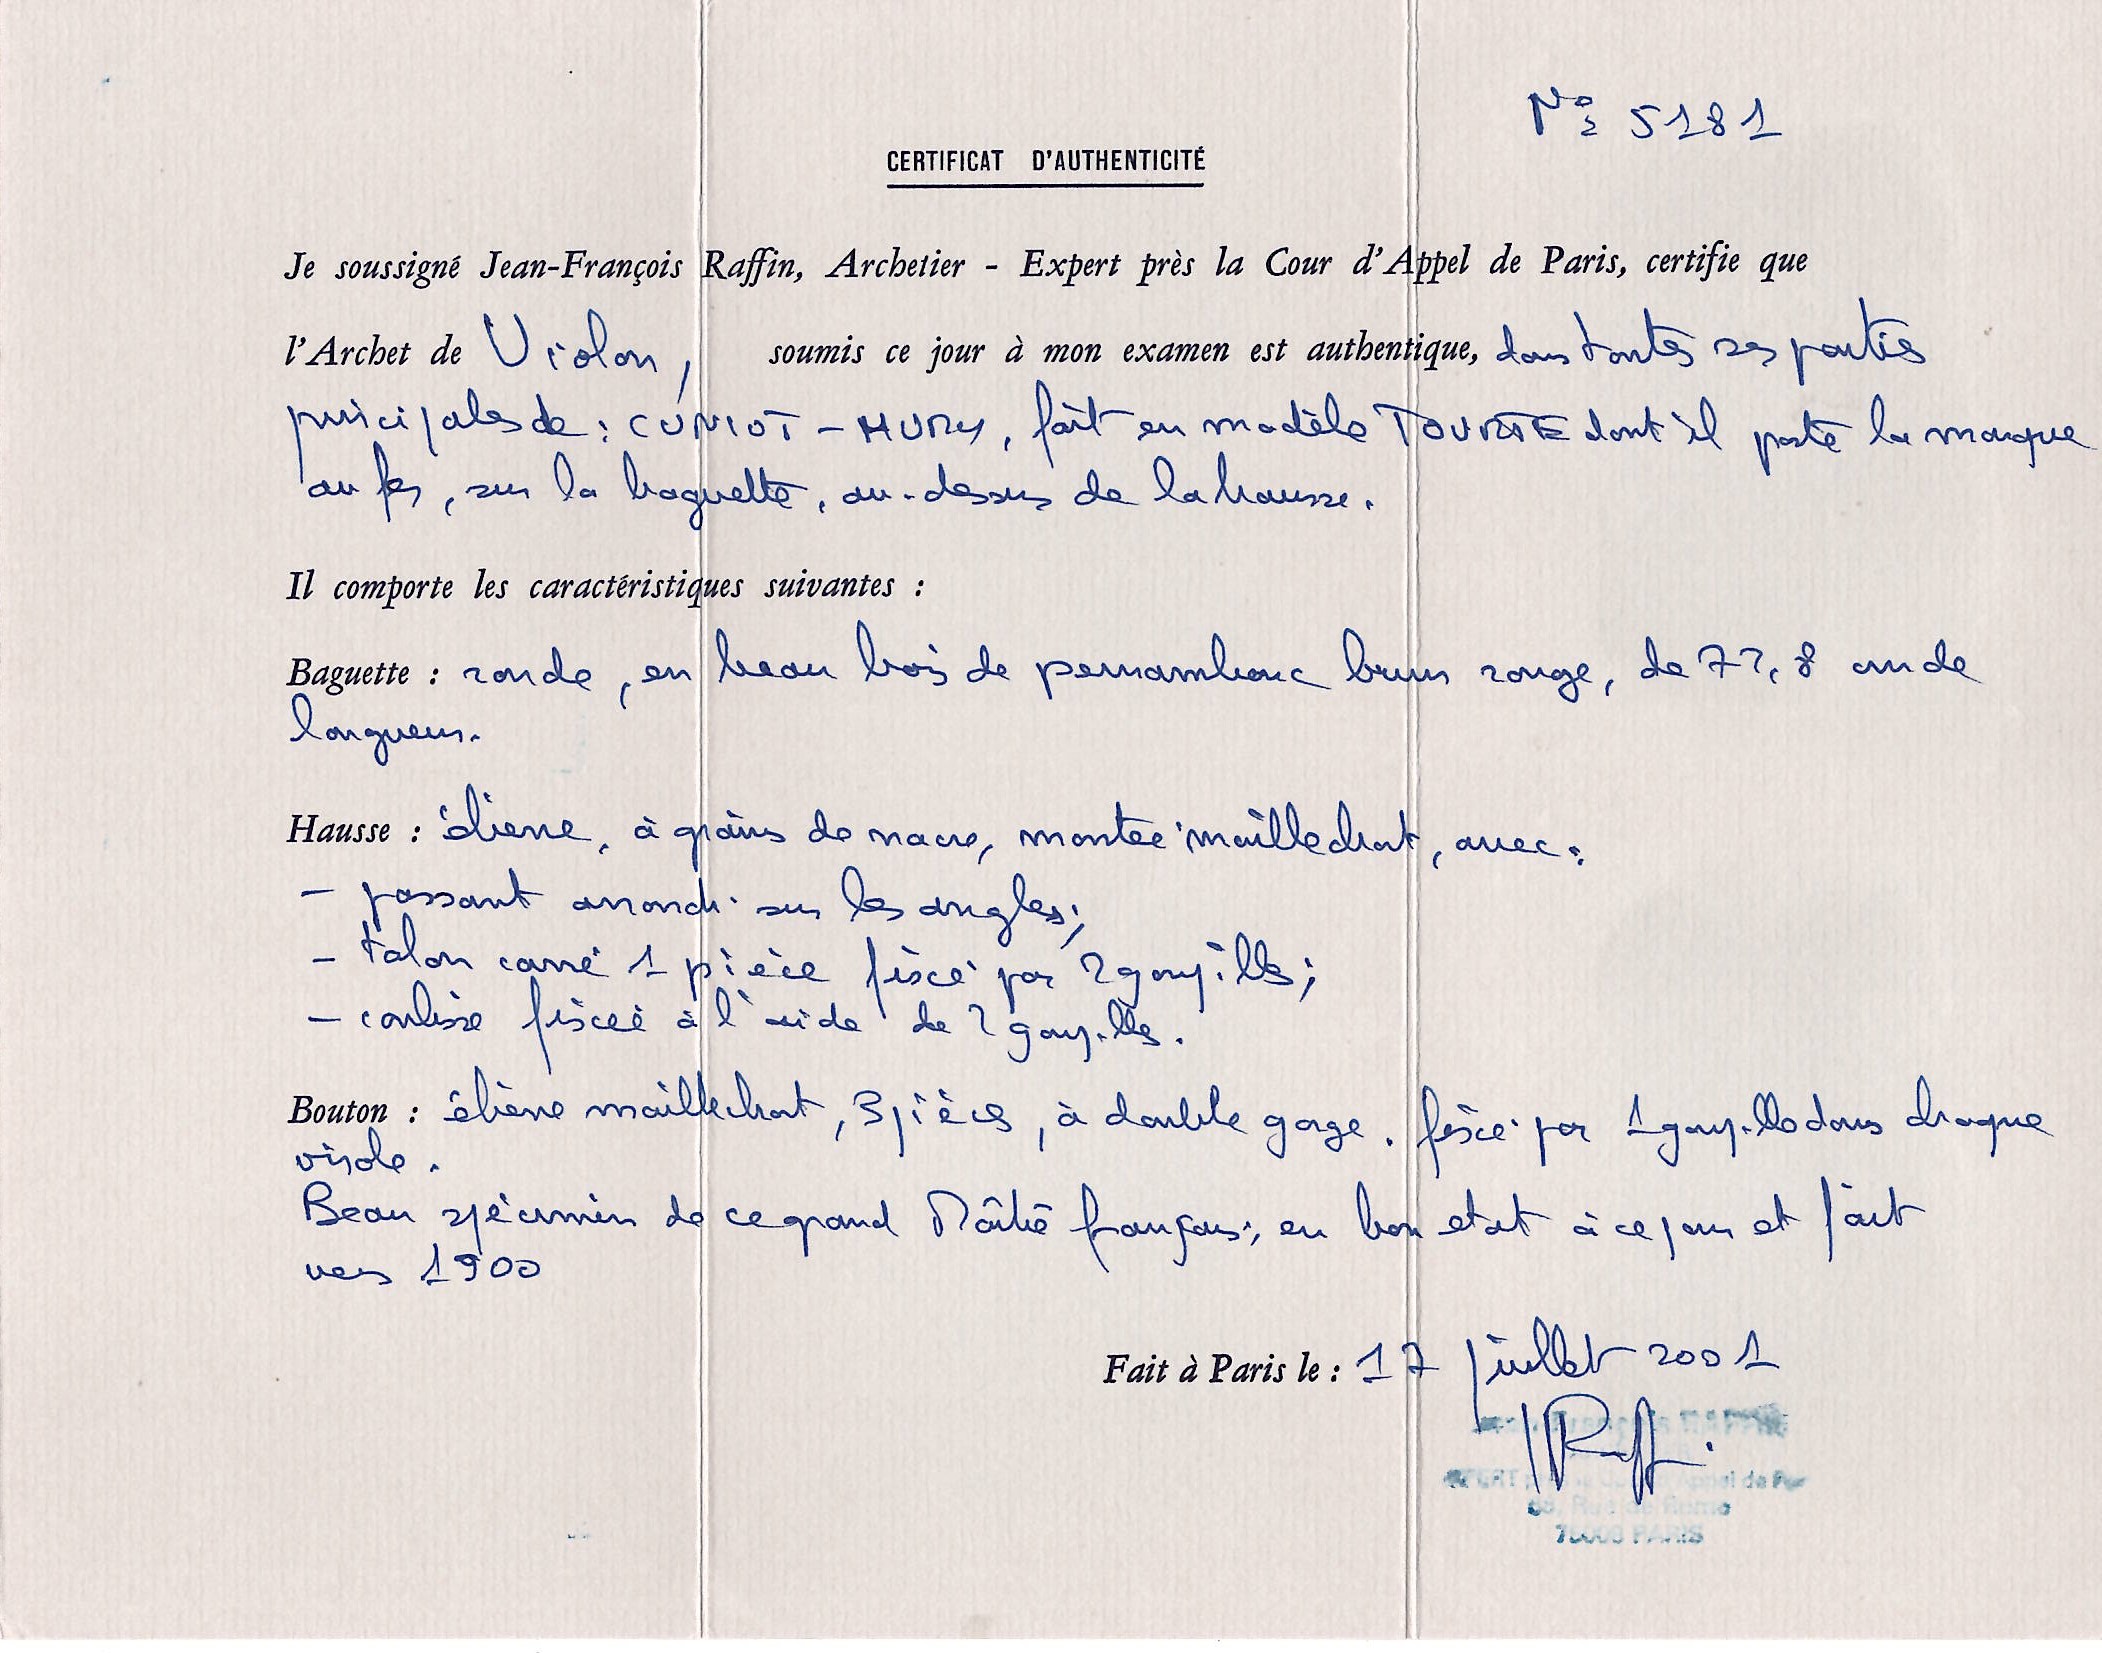 Nº 5181
CERTIFICAT D'AUTHENTICITÉ
Je soussigné Jean-François Raffin, Archetier - Expert près la Cour d'Appel de Paris, certifie que
l'Archet de Violon, soumis ce jour à mon examen est authentique, dans toutes ses parties
principales de : CUNIOT - HURY, fait en modèle TOURTE dont il porte la marque
au fer, sur la baguette, au-dessus de la hausse.
Il comporte les caractéristiques suivantes :
Baguette : ronde, en beau bois de pernambouc brun rouge, de 72,8 cm de
longueur.
Hausse : ébène, à grains de nacre, montée maillechort, avec :
- passant arrondi sur les angles ;
- talon carré 1 pièce fixé par 2 goupilles ;
- coulisse fixée à l'aide de 2 goupilles.
Bouton : ébène maillechort, 3 pièces, à double gorge, fixé par 1 goupille dans chaque
virole.
Beau spécimen de ce grand Maître français, en bon etat à ce jour et fait
vers 1900
Fait à Paris le : 17 juillet 2001
Raffin
Appel de
Rue de Rome
75008 PARIS